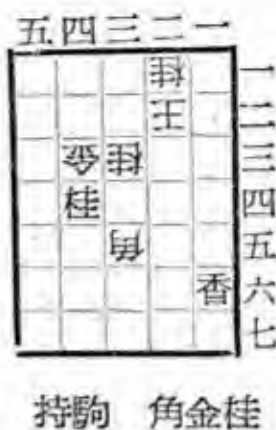 五四三二一
桂 一
王 二
金 桂 三
桂 四
角 五
香 六
七
持駒 角金桂